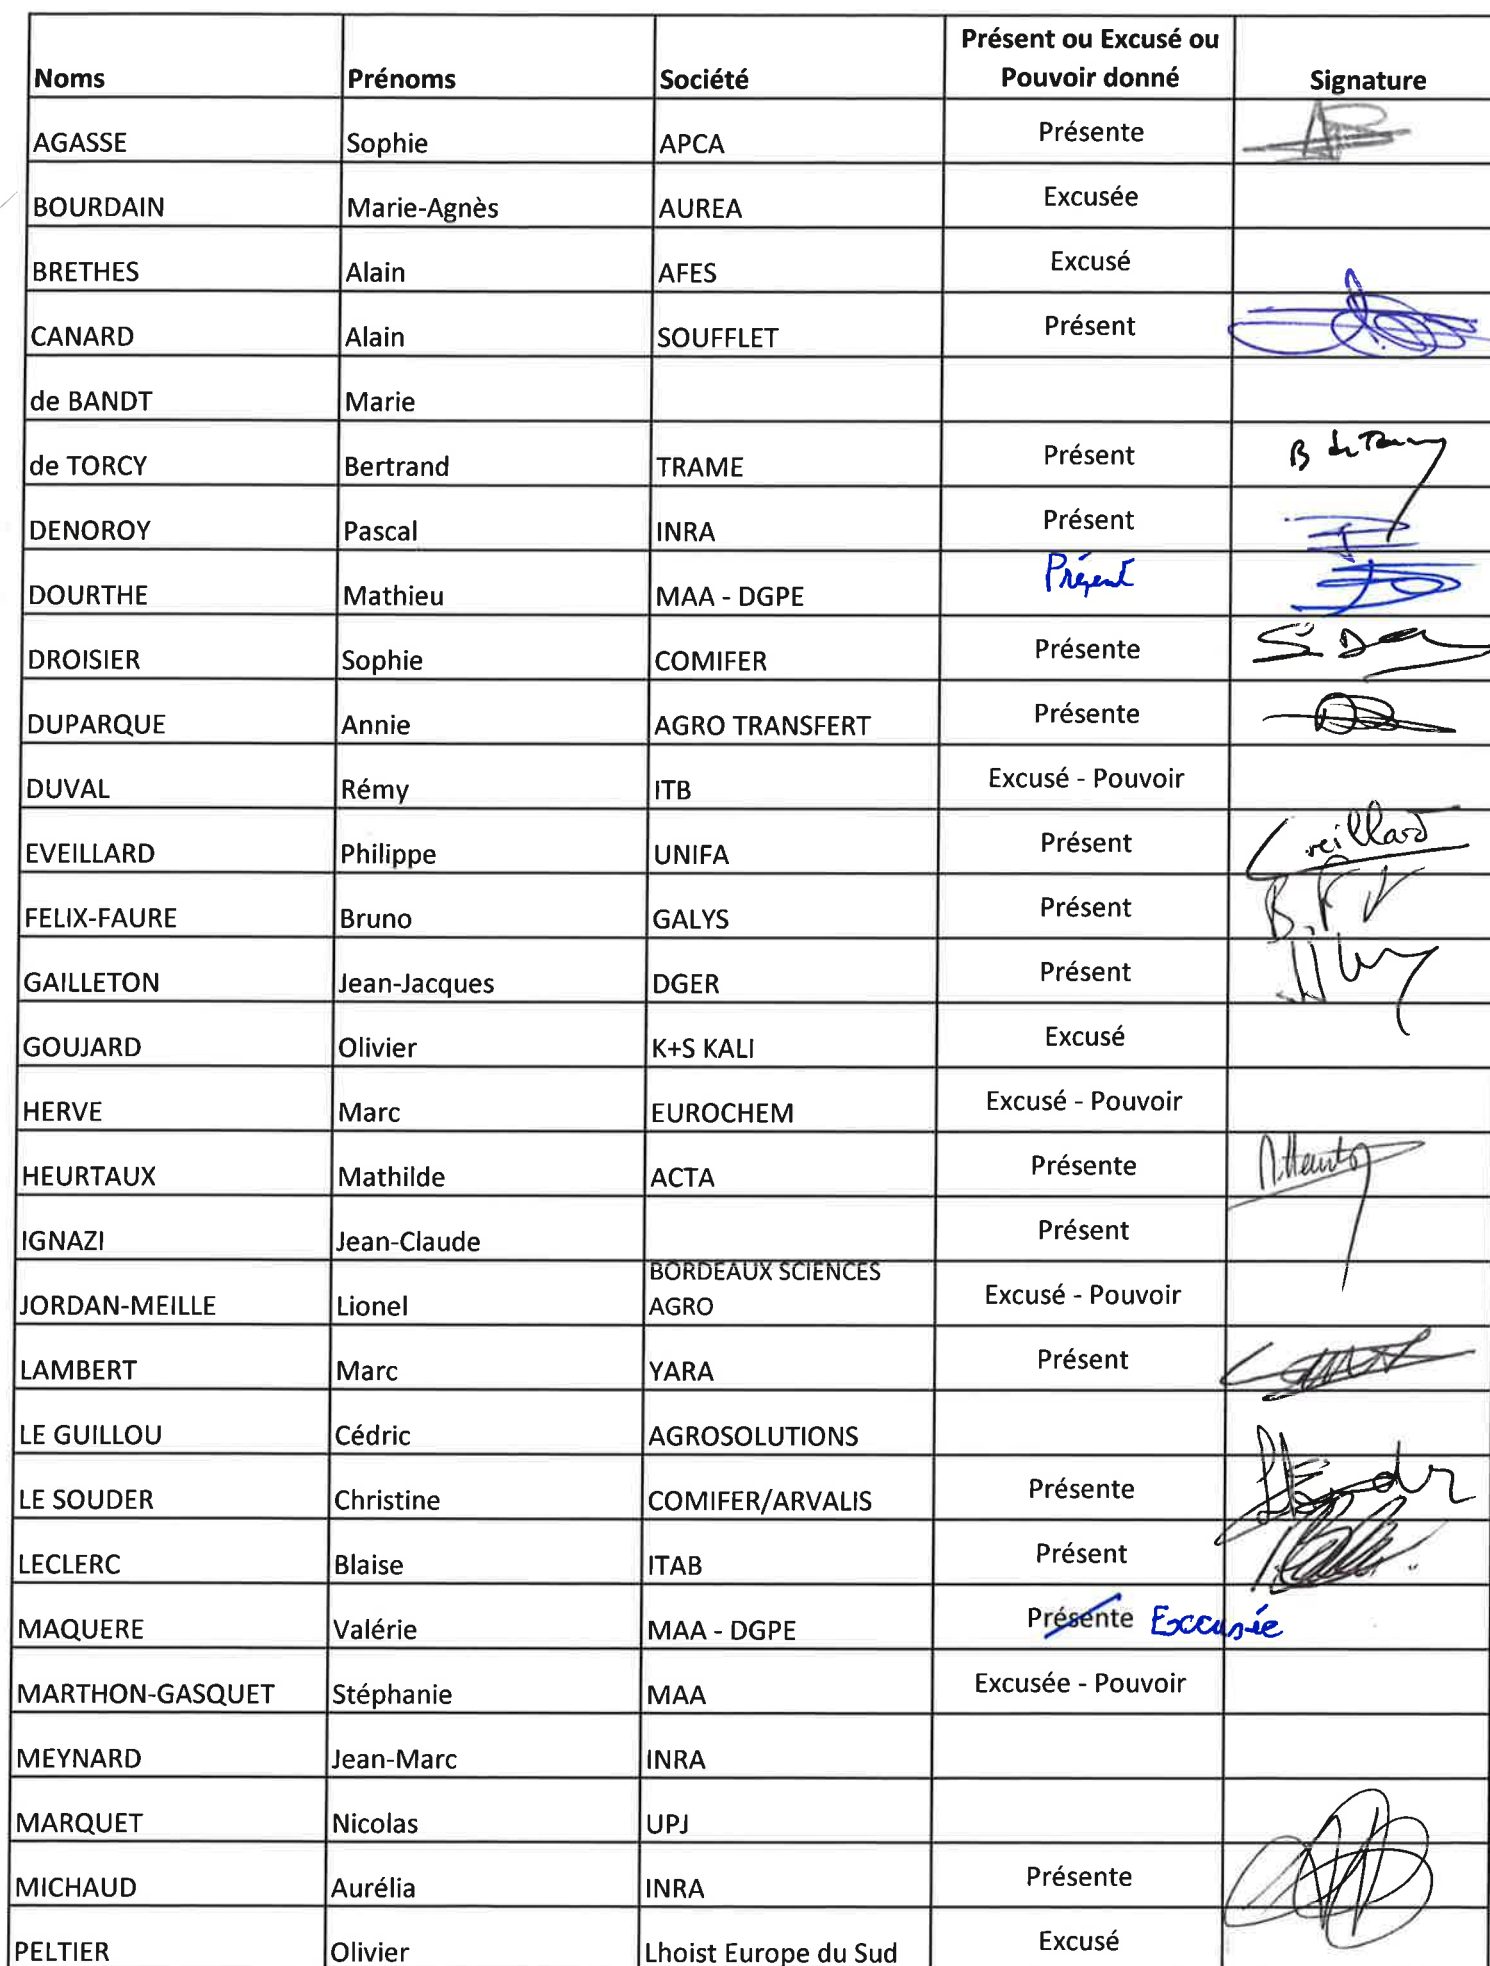 Noms Prénoms Société Présent ou Excusé ou Pouvoir donné Signature
AGASSE Sophie APCA Présente
BOURDAIN Marie-Agnès AUREA Excusée
BRETHES Alain AFES Excusé
CANARD Alain SOUFFLET Présent
de BANDT Marie
de TORCY Bertrand TRAME Présent
DENOROY Pascal INRA Présent
DOURTHE Mathieu MAA - DGPE Présent
DROISIER Sophie COMIFER Présente
DUPARQUE Annie AGRO TRANSFERT Présente
DUVAL Rémy ITB Excusé - Pouvoir
EVEILLARD Philippe UNIFA Présent
FELIX-FAURE Bruno GALYS Présent
GAILLETON Jean-Jacques DGER Présent
GOUJARD Olivier K+S KALI Excusé
HERVE Marc EUROCHEM Excusé - Pouvoir
HEURTAUX Mathilde ACTA Présente
IGNAZI Jean-Claude Présent
JORDAN-MEILLE Lionel BORDEAUX SCIENCES AGRO Excusé - Pouvoir
LAMBERT Marc YARA Présent
LE GUILLOU Cédric AGROSOLUTIONS
LE SOUDER Christine COMIFER/ARVALIS Présente
LECLERC Blaise ITAB Présent
MAQUERE Valérie MAA - DGPE Présente Excusée
MARTHON-GASQUET Stéphanie MAA Excusée - Pouvoir
MEYNARD Jean-Marc INRA
MARQUET Nicolas UPJ
MICHAUD Aurélia INRA Présente
PELTIER Olivier Lhoist Europe du Sud Excusé